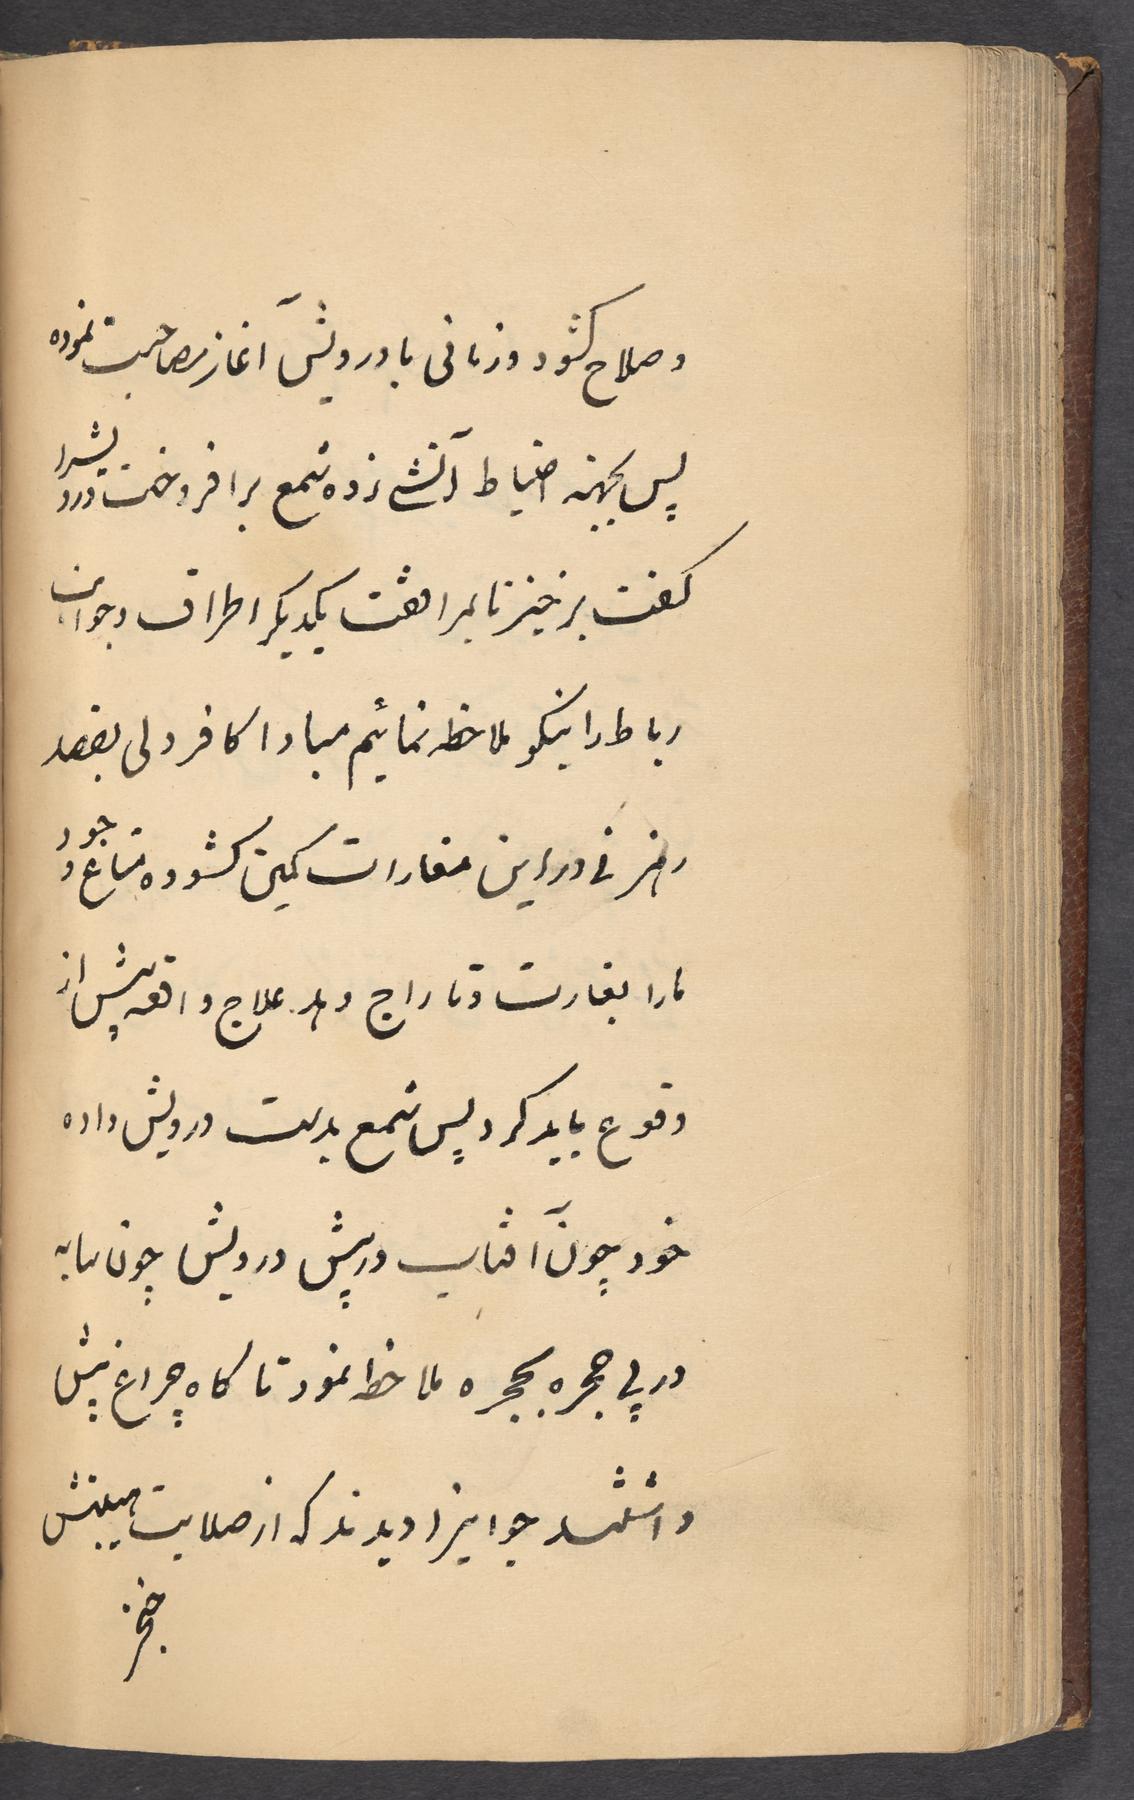 وصلاح کشود و زمانی با درویش آغاز مصاحبت نموده
پس بجهته احتیاط آتشی زده شمع برافروخت درویشرا
کفت برخیز تا بمرافقت یکدیکر اطراف وجوانب
رباط را نیکو ملاحظه نمائیم مبادا کافر دلی بقصد
رهزنی در این مغارات کمین کشوده متاع وجود
مارا بغارت وتاراج دهد علاج واقعه پیش از
وقوع باید کرد پس شمع بدست درویش داده
خود چون آفتاب درپیش درویش چون سایه
درپی حجره بحجره ملاحظه نمود تا کاه چراغ پیش
داشتند جوانیرا دیدند که از صلابت هیبتش
خنجر